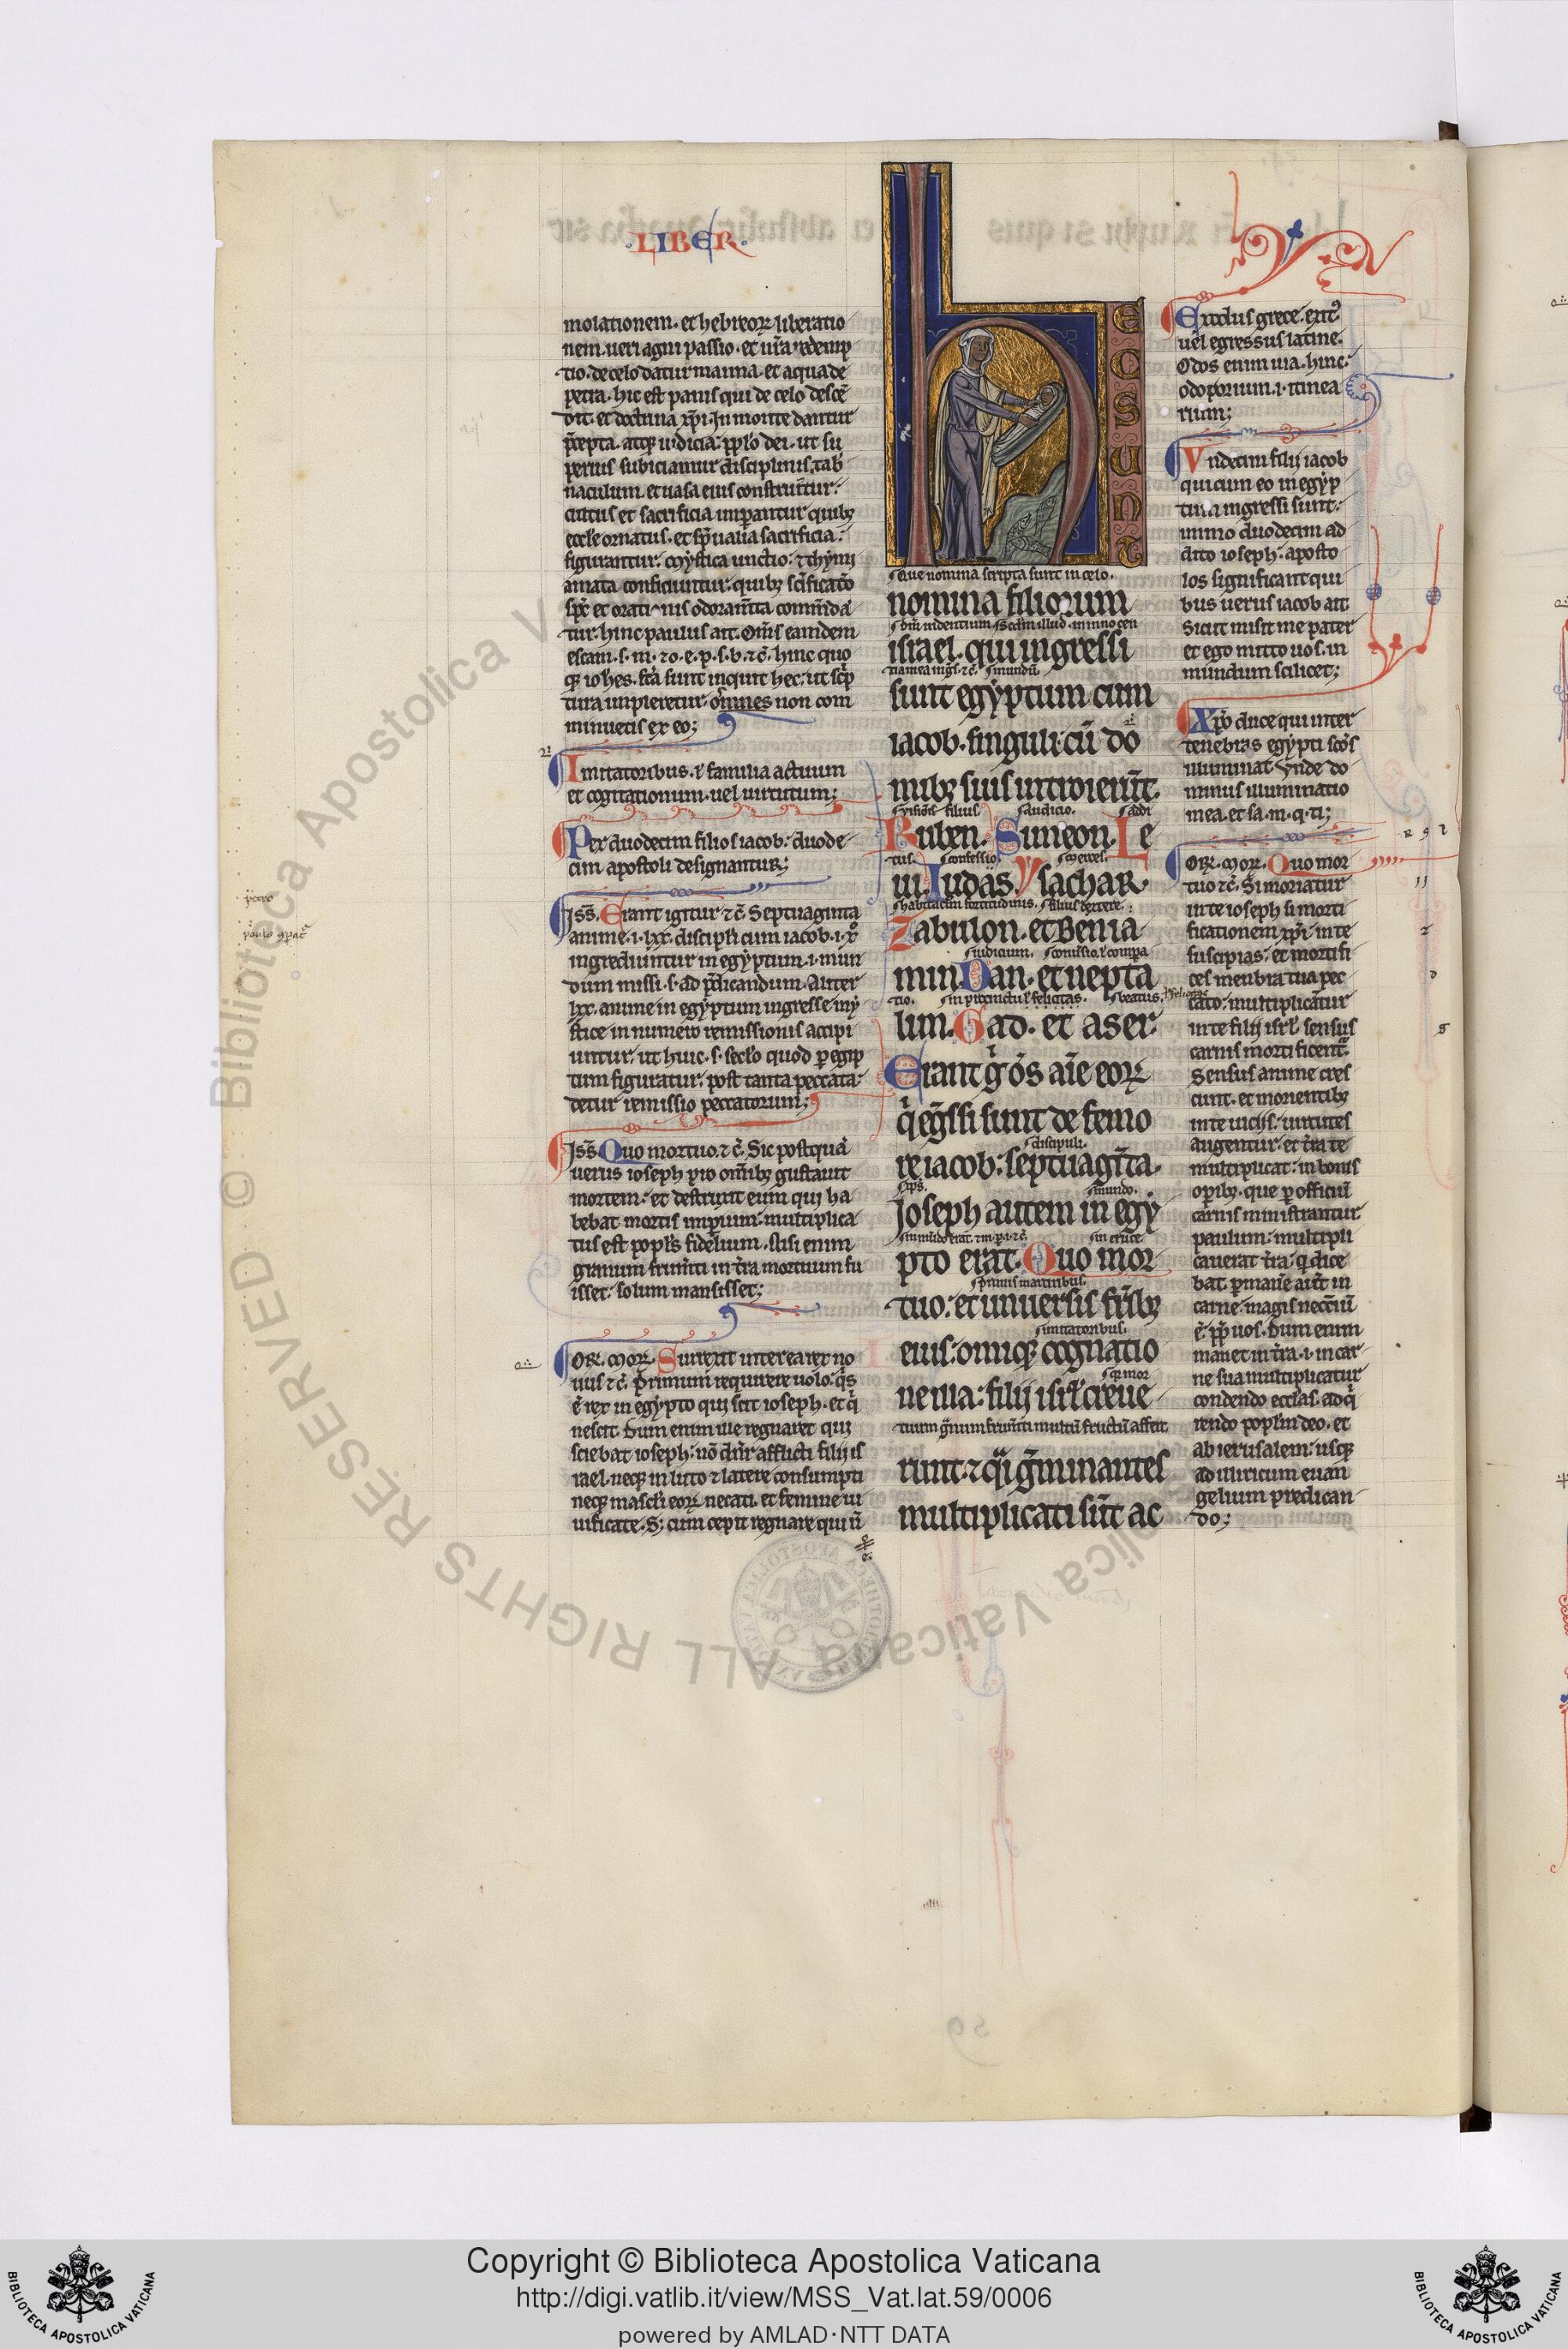 LIBER
molationem. et hebreoꝝ liberatio
nem. ueri agni passio. et nr̄a redemp
tio. de celo datur manna. et aqua de
petra. hic est panis qui de celo descē
dit. et doctrina xp̄i. In monte dantur
p̄cepta. atqꝫ iudicia. pp̄lo dei. ut su
pernis subiciantur disciplinis. tab̄
naculum. et uasa eius construūtur.
cultus et sacrificia imꝑantur quibꝫ
eccl̄e ornatus. et sp̄ualia sacrificia
figurantur. Mystica unctio. ⁊ thymi
amata conficiuntur. quibꝫ sc̄ificatō
sp̄c et orationis odoram̄ta commēda
tur. hinc paulus ait. Om̄s eamdem
escam. s. m. ⁊ o. e. p. s. b. ⁊c̄. hinc quo
qꝫ ioh̄es. fc̄a sunt inquit hec. ut sc̄p
tura impleretur. omnes non com
minuetis ex eo;
Imitatoribus. ł familia actuum
et cogitationum. uel uirtutum;
Per duodecim filios iacob. duode
cim apostoli designantur;
Iss̄. Erant igitur ⁊c̄. Septuaginta
anime. i. lxx. discipl̄i cum iacob. i. xͦ
ingrediuntur in egyptum. i. mun
dum missi. s. ad p̄dicandum. Aliter
lxx. anime in egyptum ingresse my
stice in numero remissionis accipi
untur. ut huic. s. sec̄lo quod ꝑ egip
tum figuratur. post tanta peccata
detur remissio peccatorum;
Iss̄. Quo mortuo. ⁊c̄. Sic postquā
uerus ioseph pro om̄ibꝫ gustauit
mortem. et destruxit eum qui ha
bebat mortis imꝑium. multiplica
tus est popl̄s fidelium. Nisi enim
granum frum̄ti in t̄ra mortuum fu
isset. solum mansisset;
OR. MOR. Surrexit interea rex no
uus ⁊c̄. Primum requirere uolo. qͥs
ē rex in egypto qui scit ioseph. et qͥ
nescit. Dum enim ille regnaret qui
sciebat ioseph. nō dn̄r afflicti filij is
rael. neqꝫ in luto ⁊ latere consumpti
neqꝫ mascl̄i eoꝝ necati. et femine ui
uificate. S; cum cepit regnare qui ñ
EC SUNT
Que nomina scripta sunt in celo.
nomina filiorum
israel. qui ingressi
sunt egyptum cum
iacob. singuli. cū do
mibꝫ suis introierūt.
uisiōis filius auditio. addi
Ruben. Simeon. Le
tus. confessio. merces.
ui. Iudas. Ysachar
habitaclm fortitudinis. filius dextere.
Zabulon. et Benia
iudicium.
min Dan. et nepta
tio. in p̄cinctu ł felicitas. beatus.
lim. Gad. et aser.
Erant gͥ ōs aīe eoꝝ
qͥ eg̃ssi sunt de femo
discipuli.
re iacob: septuagīta.
xp̄s. mundo.
Ioseph autem in egy
in cruce
pto erat. Quo mor
primis martiribus.
tuo: et uniuersis fr̄ibꝫ
imitatoribus.
eius: omniqꝫ cognatio
ne illa: filij isrl̄ creue
tuum g̃num frum̄ti multū fructū affert
runt: ⁊ qͣi g̃minantes
multiplicati sūt ac
Exodus grece. exitꝰ
uel egressus latine.
Odos enim uia. hinc
odoporium. i. itinea
rium;
Vndecim filij iacob
qui cum eo in egyp
tum ingressi sunt.
immo duodecim ad
dito ioseph. aposto
los significant qui
bus uerus iacob ait.
Sicut misit me pater
et ego mitto uos. in
mundum scilicet;
Xp̄o duce qui inter
tenebras egypti sc̄os
illuminat. Vnde do
minus illuminatio
mea. et sa. m. q. ti;
OR. MOR. Quo mor
tuo ⁊c̄. Si moriatur
in te ioseph si morti
ficationem xp̄i in te
suscipias. et mortifi
ces menbra tua pec
cato. multiplicātur
in te filij isrl̄. sensus
carnis mortificentͣ.
Sensus anime cres
cunt. et morientibꝫ
in te uicijs. uirtutes
augentur. et t̄ra te
multiplicat. in bonis
oꝑibꝫ. que ꝑ officiū
carnis ministrantur
paulum. multipli
cauerat t̄ra. q̄ dice
bat. ꝑmanē aut̄ in
carne. magis necc̄iū
ē. pp̄ uos. Dum enim
manet in t̄ra. i. in car
ne sua multiplicatur
condendo eccl̄as. adqͥ
rendo popl̄m deo. et
ab ierusalem. usqꝫ
ad illiricum euan
gelium predican
do;
© Biblioteca Apostolica Vaticana ALL RIGHTS RESERVED
Copyright © Biblioteca Apostolica Vaticana
http://digi.vatlib.it/view/MSS_Vat.lat.59/0006
powered by AMLAD·NTT DATA
BIBLIOTECA APOSTOLICA VATICANA
BIBLIOTECA APOSTOLICA VATICANA